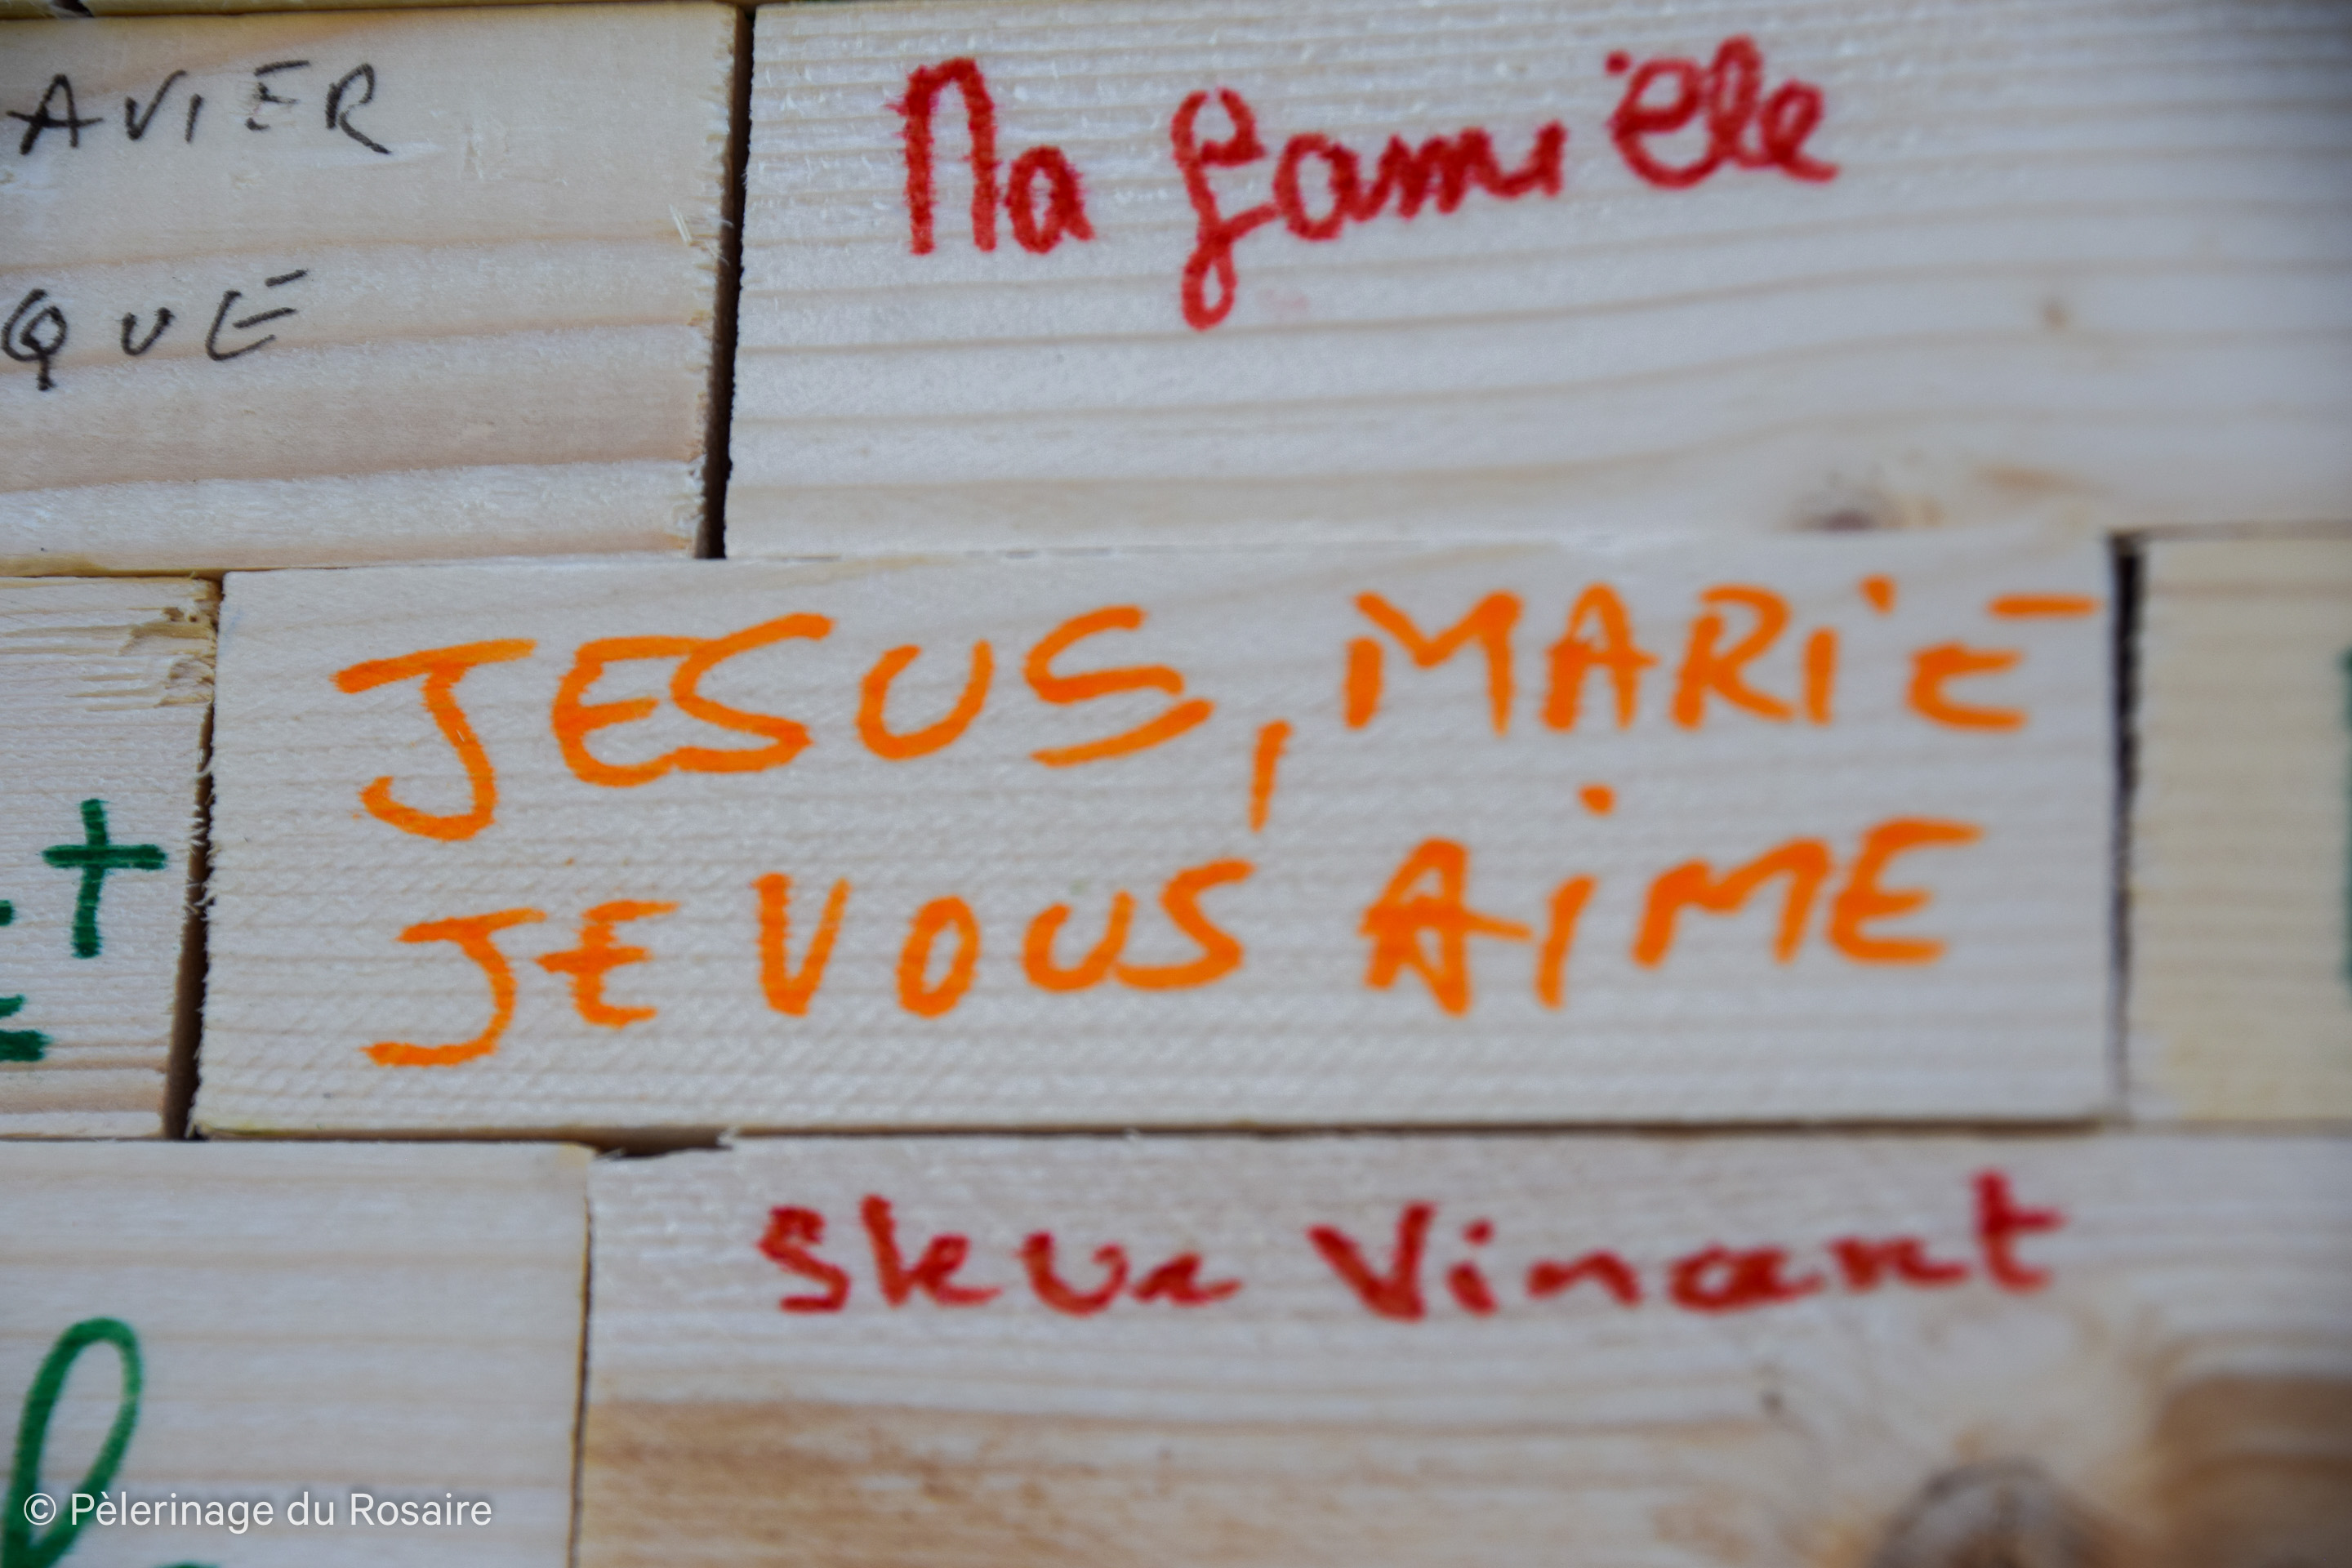 AVIER
QUE
Ma famille
JESUS, MARIE
JE VOUS AIME
+
Vincent
© Pèlerinage du Rosaire